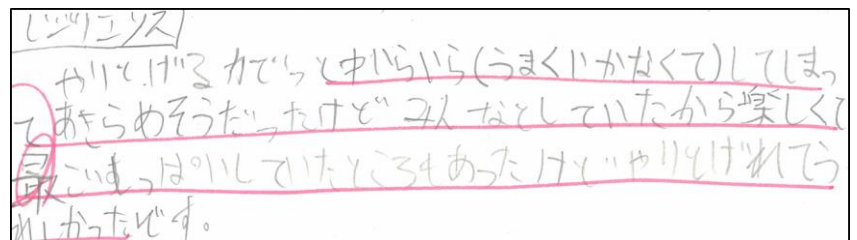 レジリエンス
やりとげる力でと中いらいら(うまくいかなくて)してしまっ
てあきらめそうだったけどみんなとしていたから楽しくて
最ごいもっぱいしていたところもあったけどやりとげれてう
れしかったです。